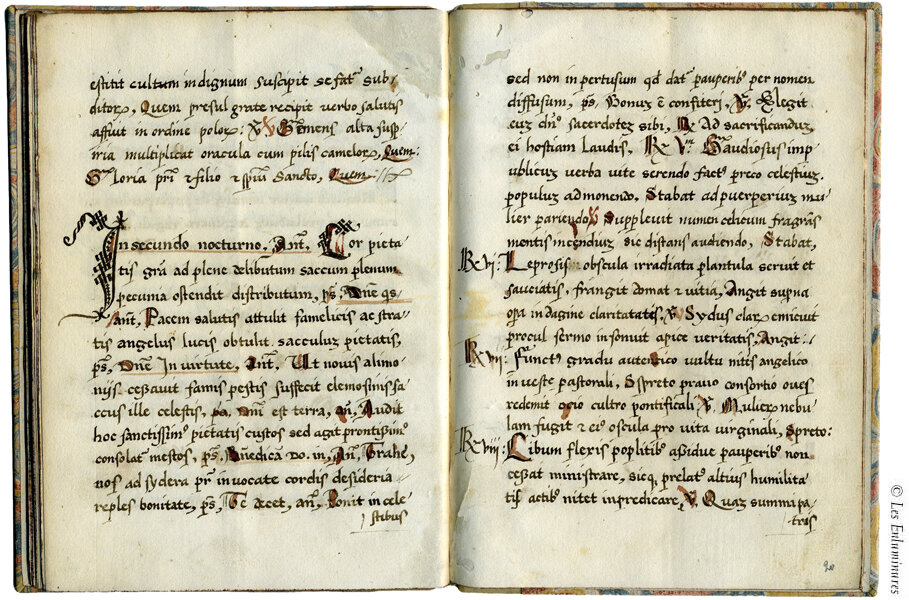 estitit cultum indignum suscipit se fat͂ sub-
ditoꝝ, Quem presul grate recipit verbo salutis
affuit in ordine poloꝝ. ℣ Clemens alta susp-
iria multiplicat oracula cum pilis cameloꝝ, Quem:
Gloria pr̄i & filio & sp̄ui Sancto, Quem:
In secundo nocturno. Ant͂. Cor pieta-
tis gr̄a ad plene delibutum saccum plenum
pecunia ostendit distributum, ps̄, Dn̄e qs̄
ant͂, Pacem salutis attulit famelicis ac stra-
tis angelus lucis obtulit sacculus pietatis,
ps̄, Dn̄e In virtute, Ant͂, Ut novis alimo-
nijs cessavit famis pestis suffecit elemosinis sa-
ccus ille celestis, Dn̄i est terra, an͂, Audit
hoc sanctissimꝰ pietatis custos sed agit prontissimꝰ
consolat͂ mestos, ps̄, Bn̄edica do. in, An͂, Trahe,
nos ad sydera pr̄ invocate cordis desideria
reples bonitate, ps̄, Te decet, an͂, Ponit in cele
stibus
sed non in pertusum qd dat͂ pauperibꝰ per nomen
diffusum, ps̄, Bonuz ē confiteri, ℣. Elegit
euz dn̄s sacerdotez sibi, ℟ Ad sacrificanduz
ei hostiam laudis, ℟ Vm Gaudiosus imp-
ublicuz verba vite serendo factꝰ preco celestiuz
populus admonendo. Stabat ad puerperiuz mu-
lier pariendo ℣ Supplevit numen celicum fragrās
mentis incendiuz sic distans audiendo, Stabat,
℟ vi: Leprosis obscula irradiata plantula servit et
sauciatis, frangit domat & vitia, Angit supna
opa indagine claritatatis, ℣ Sydus claꝝ emicuit
procul sermo insonuit apice veritatis, Angit:
℟ vij: Functꝰ gradu autentico vultu mitis angelico
in veste pastorali, Spreto pravo consortio oves
redemit ocio cultro pontificali ℣. Mulier nebu
lam fugit & ei oscula pro vita virginali, Spreto:
℟ viij: Libum flexis poplitibꝰ assidue pauperibꝰ non
cessat ministrare, sicq prelatꝰ altius humilita
tis actibꝰ nitet inpredicare, ℣. Quaz summi pa-
tris
20
© Les Enluminures